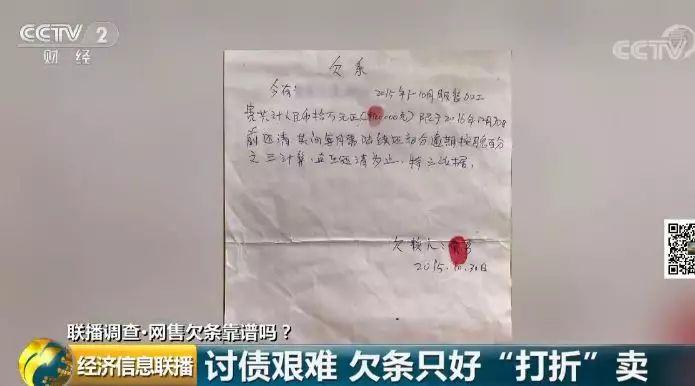 CCTV 2
财经
CCTV
欠条
今有 2015年5-10月服售加工
费共计人民币拾万元正(¥100000元) 限于2016年12月30日
前还清 其间每月需陆续还部分逾期按月息百分
之三计算,直至还清为止。特立此据。
欠款人:
2015.10.30日
联播调查·网售欠条靠谱吗?
经济信息联播
讨债艰难 欠条只好“打折”卖